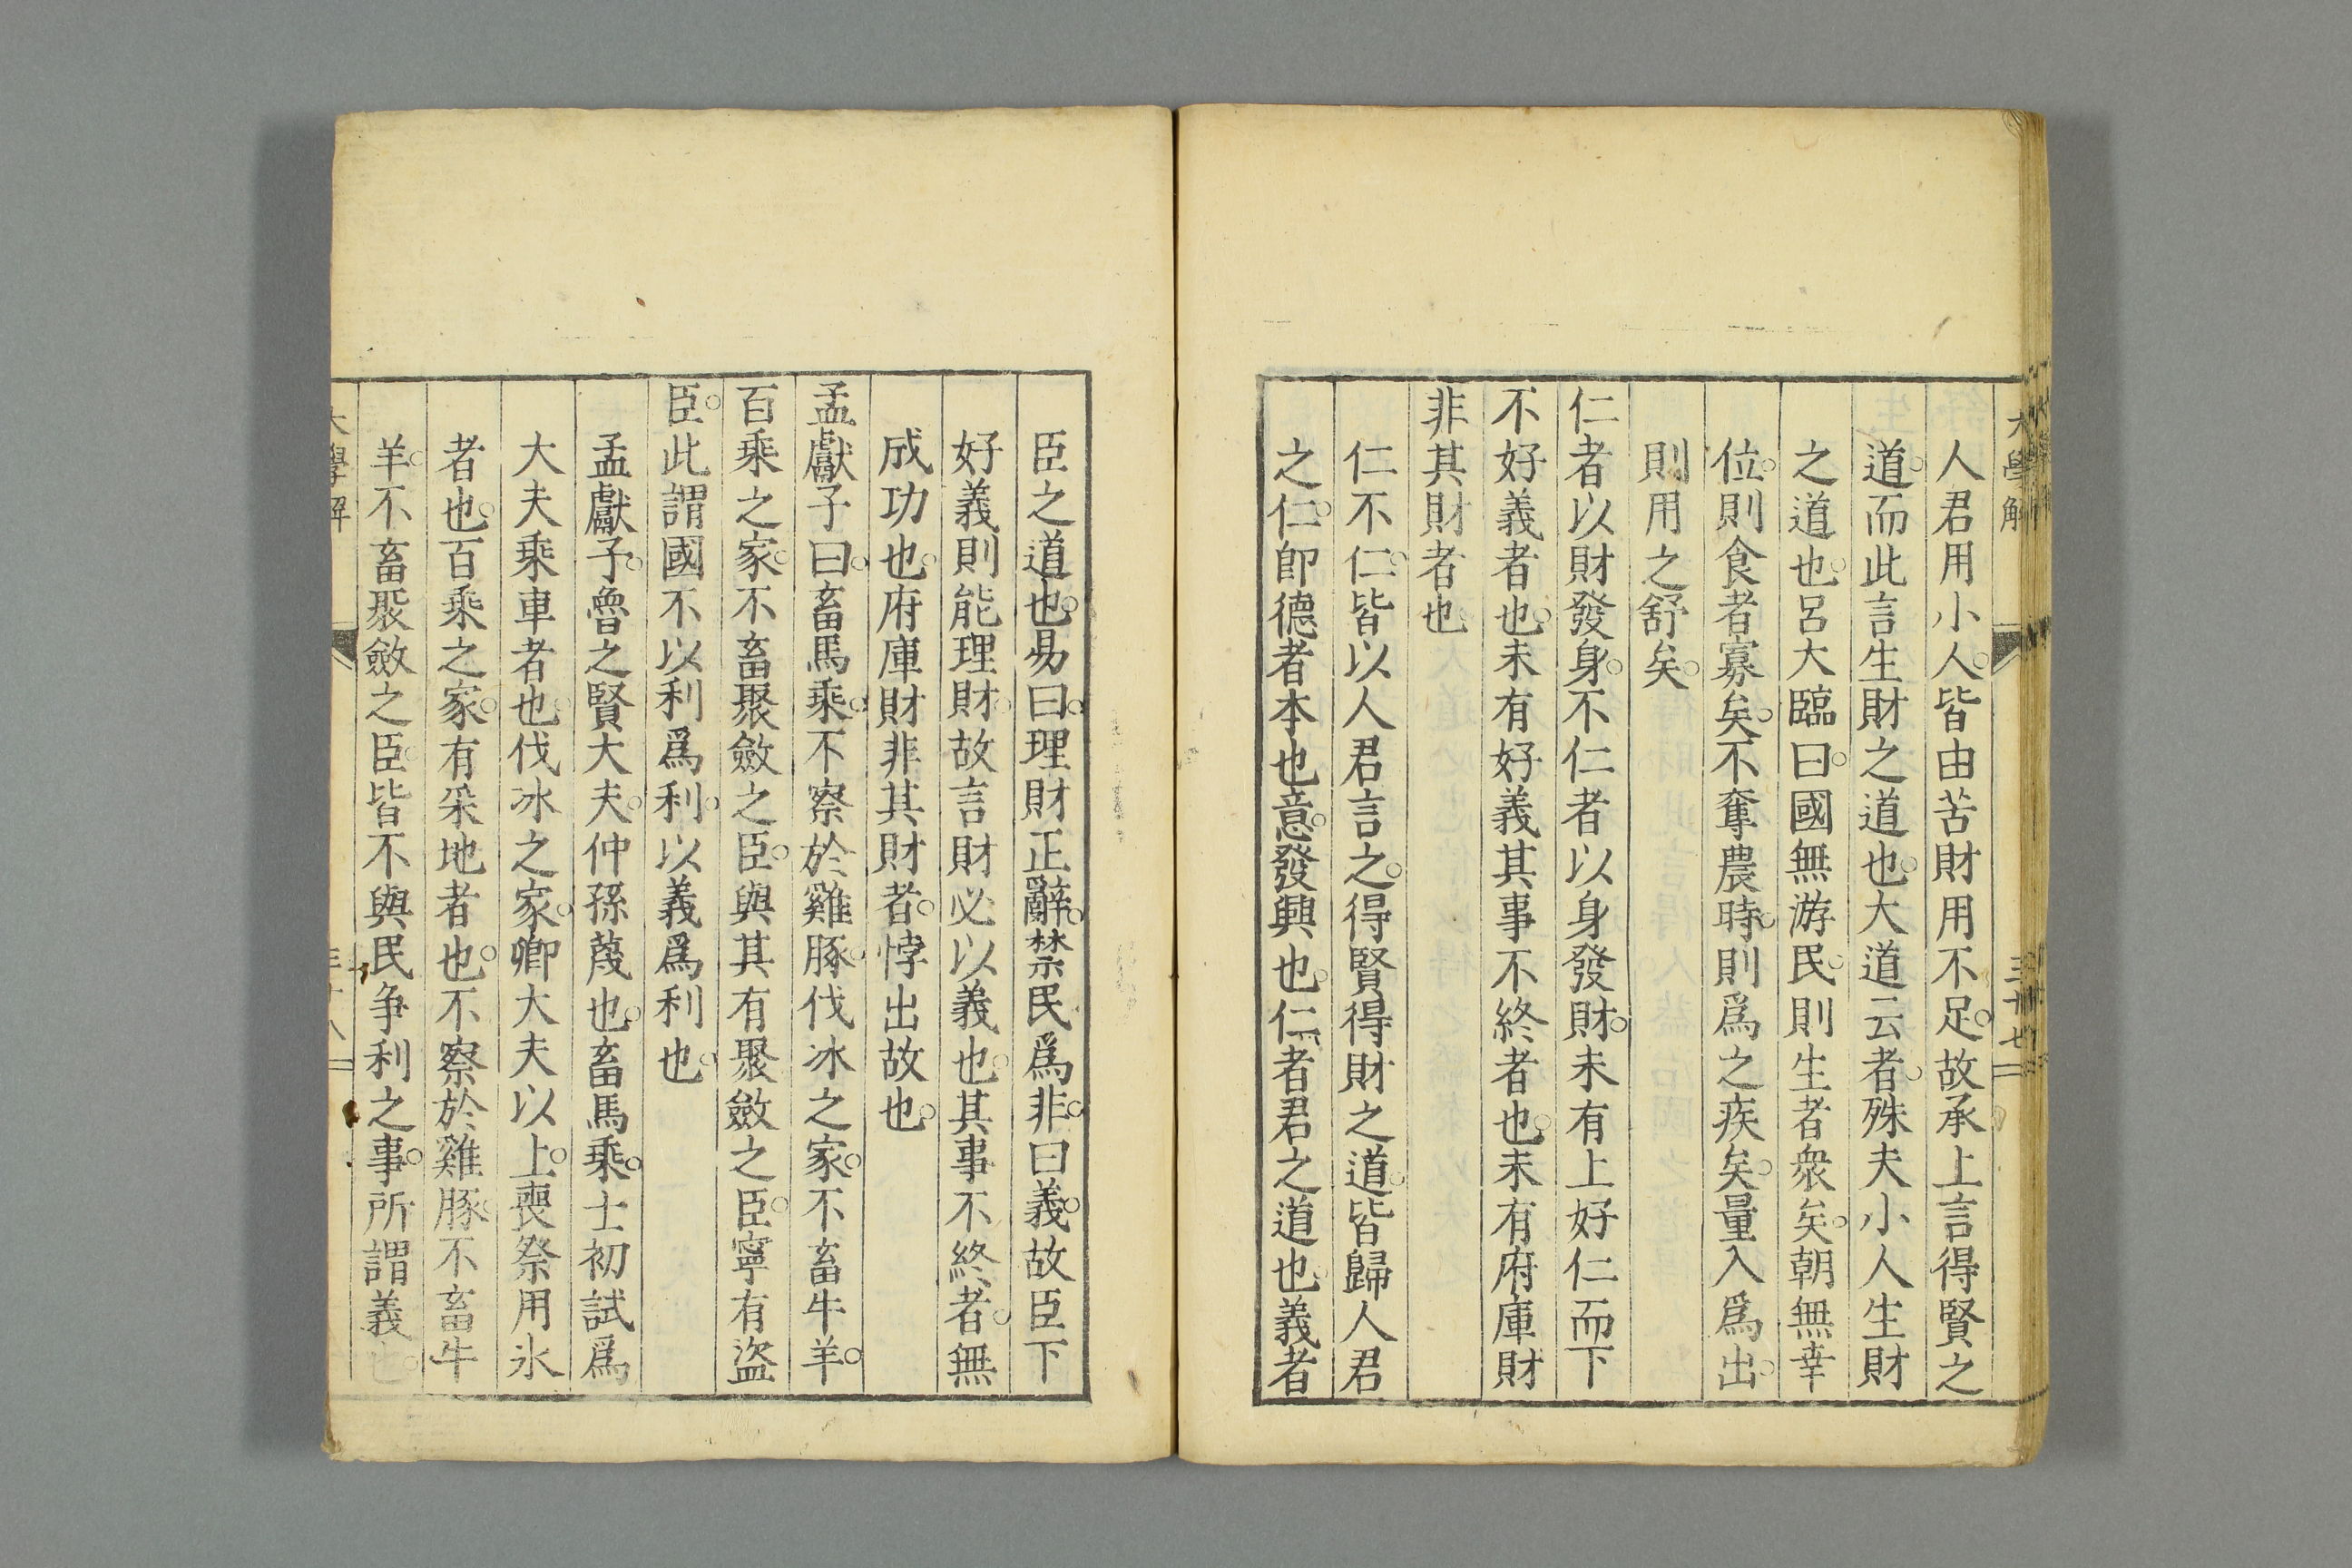 大學解
三十七
人君用小人。皆由苦財用不足。故承上言得賢之
道。而此言生財之道也。大道云者。殊夫小人生財
之道也。呂大臨曰。國無游民。則生者衆矣。朝無幸
位。則食者寡矣。不奪農時。則爲之疾矣。量入爲出。
則用之舒矣。
仁者以財發身。不仁者以身發財。未有上好仁而下
不好義者也。未有好義其事不終者也。未有府庫財
非其財者也。
仁不仁。皆以人君言之。得賢得財之道。皆歸人君
之仁。卽德者本也。意。發興也。仁者君之道也。義者
臣之道也。易曰。理財正辭。禁民爲非。曰義。故臣下
好義則能理財。故言財必以義也。其事不終者。無
成功也。府庫財非其財者。悖出故也。
孟獻子曰。畜馬乘。不察於雞豚。伐冰之家。不畜牛羊。
百乘之家。不畜聚斂之臣。與其有聚斂之臣。寧有盜
臣。此謂國不以利爲利。以義爲利也。
孟獻子。魯之賢大夫。仲孫蔑也。畜馬乘。士初試爲
大夫乘車者也。伐冰之家。卿大夫以上。喪祭用氷
者也。百乘之家。有采地者也。不察於雞豚。不畜牛
羊。不畜聚斂之臣。皆不與民争利之事。所謂義也。
大學解
三十八